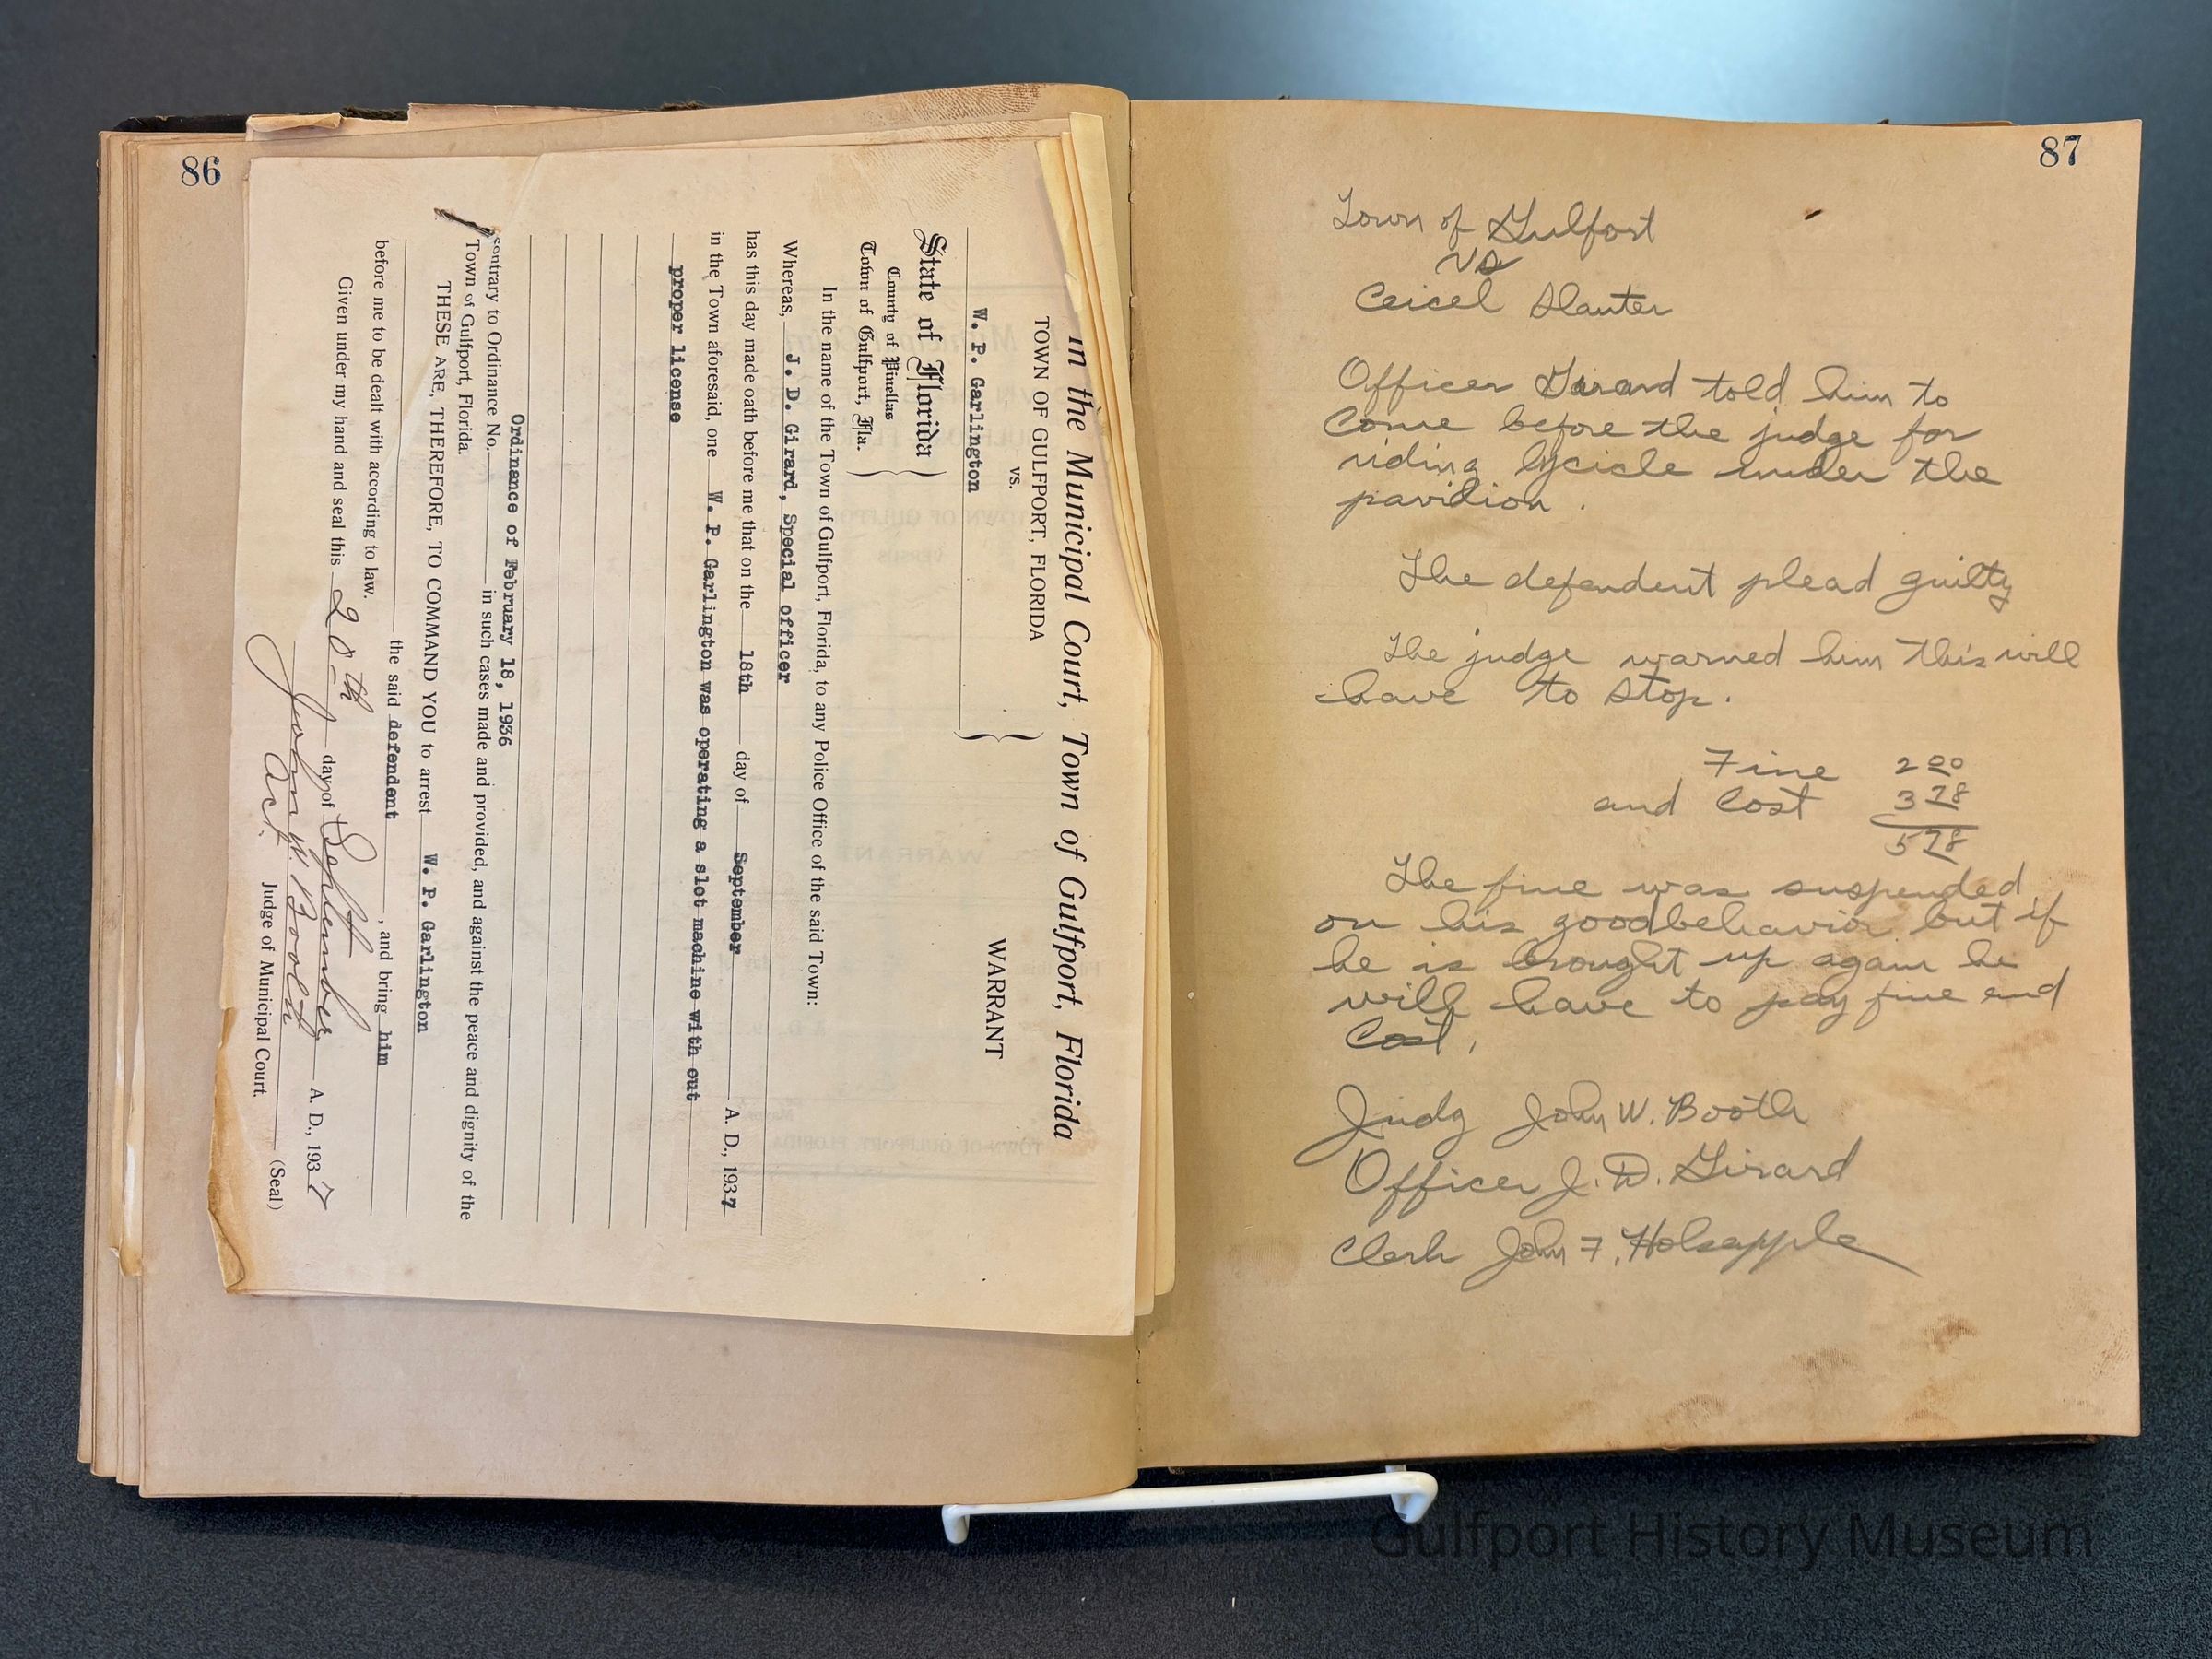 86
In the Municipal Court, Town of Gulfport, Florida
TOWN OF GULFPORT, FLORIDA
vs.
WARRANT
W. P. Garlington
State of Florida
County of Pinellas
Town of Gulfport, Fla.
In the name of the Town of Gulfport, Florida, to any Police Office of the said Town:
Whereas, J. D. Girard, Special officer
has this day made oath before me that on the 18th day of September A. D., 1937
in the Town aforesaid, one W. P. Garlington was operating a slot machine with out
proper license
Ordinance of February 18, 1936
contrary to Ordinance No. in such cases made and provided, and against the peace and dignity of the
Town of Gulfport, Florida.
THESE ARE, THEREFORE, TO COMMAND YOU to arrest W. P. Garlington
the said defendent, and bring him
before me to be dealt with according to law.
Given under my hand and seal this 20th day of September A. D., 1937
John W. Booth (Seal)
Act. Judge of Municipal Court.
87
Town of Gulfort
vs
Ceicel Slauter
Officer Girard told him to
Come before the judge for
riding bycicle under the
pavilion.
The defendent plead guilty
The judge warned him this will
have to stop.
Fine 2 00
and Cost 3 78
5 78
The fine was suspended
on his goodbehavior but if
he is brought up again he
will have to pay fine and
Cost.
Judg John W. Booth
Officer J. D. Girard
Clerk John F. Holsapple
Gulfport History Museum